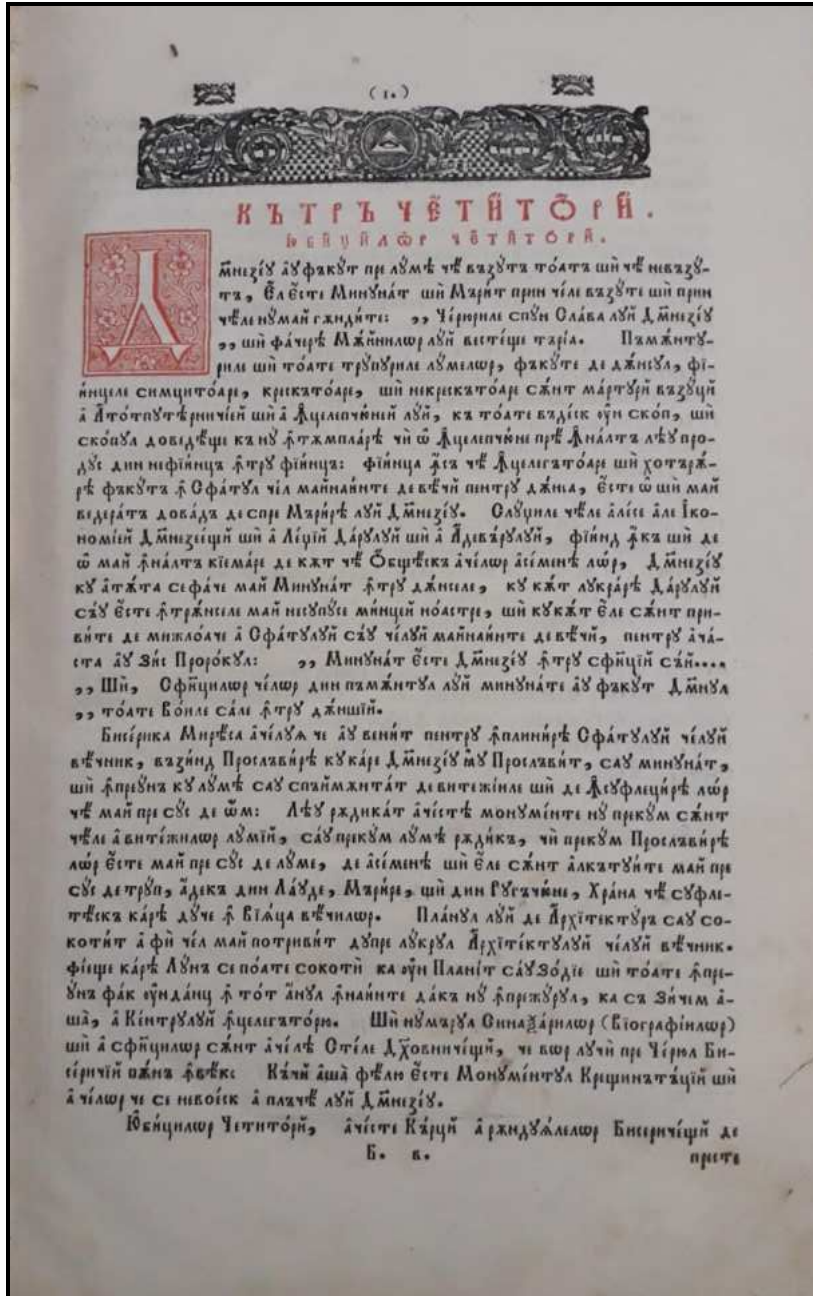 (1.)
КЪТРЪ ЧЕ́ТИ́ТО́РИ́.
Ю҆БИ́ЦИ́ЛѠР ЧЕ́ТИ́ТО́РИ́.
Д
м҃незе́ꙋ а҆ꙋ фъкꙋ́т пре лꙋ́мѣ че҆ възꙋ́тъ то́атъ шѝ че҆ невъзꙋ́-
тъ, Є҆́л є҆́сте Минꙋна́т шѝ Мъри́т прин че́ле възꙋ́те шѝ прин
че́ле нꙋма́й гѫнди́те: ,, Че́рюриле спꙋ́н Сла́ва лꙋ́й Дм҃незе́ꙋ
,, шѝ фа́черѣ Мѫ́йнилѡр лꙋ́й весте́ще тъ́рїа. Пъмѫ́нтꙋ-
риле шѝ то́ате трꙋ́пꙋриле лꙋ́мелѡр, фъкꙋ́те де дѫ́нсꙋл, фї-
и́нцеле симцито́аре, крескъто́аре, шѝ некрескъто́аре сѫ́нт ма́ртꙋрй възꙋ́цй
а҆ А҆то́тпꙋте́рничїей шѝ а҆ Ꙟ҆целепчю́ней лꙋ́й, къ то́ате въде́ск ꙋ҆́н ско́п, шѝ
ско́пꙋл доведе́ще къ нꙋ́ ꙟ҆тѫмпла́рѣ чѝ ѽ Ꙟ҆целепчю́не прѣ Ꙟ҆на́лтъ лѣ́ꙋ про-
дꙋ́с дин нефїи́нцъ ꙟ҆трꙋ фїи́нцъ: фїи́нца ꙟ҆́съ че҆ Ꙟ҆целегъто́аре шѝ хотърѫ́-
рѣ фъкꙋ́тъ ꙟ҆ Сфа́тꙋл че́л майнаи́нте де вѣ́чй пентрꙋ дѫ́нса, є҆́сте ѽ шѝ май
ведера́тъ дова́дъ де спре Мъри́рѣ лꙋ́й Дм҃незе́ꙋ. Слꙋ́циле че́ле але́се а҆ле І҆ко-
номі́ей Дм҃незее́щй шѝ а҆ Ле́цїй Да́рꙋлꙋй шѝ а҆ А҆дева́рꙋлꙋй, фїи́нд ꙟ҆́къ шѝ де
ѽ май ꙟ҆на́лтъ кїема́ре де кѫ́т че҆ Ѻ҆бще́скъ а҆че́лѡр а҆се́менѣ ло́р, Дм҃незе́ꙋ
кꙋ а҆тѫ́та се фа́че май Минꙋна́т ꙟ҆трꙋ дѫ́нселе, кꙋ кѫ́т лꙋкра́рѣ Да́рꙋлꙋй
съ́ꙋ є҆́сте ꙟ҆трѫ́нселе май несꙋпꙋ́се ми́нцей но́астре, шѝ кꙋ кѫ́т є҆́ле сѫ́нт при-
ви́те де мижло́аче а҆ Сфа́тꙋлꙋй съ́ꙋ че́лꙋй майнаи́нте де вѣ́чй, пентрꙋ а҆ча́-
ста а҆ꙋ Зи́с Проро́кꙋл: ,, Минꙋна́т є҆́сте Дм҃незе́ꙋ ꙟ҆трꙋ сфи́нцїй съ́й....
,, Шѝ, Сфи́нцилѡр че́лѡр дин пъмѫ́нтꙋл лꙋ́й минꙋна́те а҆ꙋ фъкꙋ́т Дм҃нꙋл
,, то́ате во́иле са́ле ꙟ҆трꙋ дѫ́ншїй.
Бисе́рика Мире́са а҆че́лꙋꙗ че а҆ꙋ вени́т пентрꙋ ꙟ҆плини́рѣ Сфа́тꙋлꙋй че́лꙋй
вѣ́чник, възи́нд Прослъви́рѣ кꙋ ка́ре Дм҃незе́ꙋ Просльви́т, саꙋ минꙋна́т,
шѝ ꙟ҆преꙋ́нъ кꙋ лꙋ́мѣ саꙋ спъймѫнта́т де витежі́иле шѝ де Ꙟ҆сꙋфлеци́рѣ ло́р
че҆ май пре сꙋ́с де ѡ҆́м: Лѣ́ꙋ рѫдика́т а҆че́стѣ монꙋме́нте нꙋ прекꙋ́м сѫ́нт
че́ле а҆ вите́жилѡр лꙋ́мїй, са́ꙋ прекꙋм лꙋ́мѣ рѫди́къ, чѝ прекꙋм Прослъви́рѣ
ло́р є҆́сте май пре сꙋ́с де лꙋ́ме, де а҆се́менѣ шѝ є҆́ле сѫ́нт а҆лкътꙋи́те май пре
сꙋ́с де трꙋ́п, а҆́декъ дин Ла́ꙋде, Мъри́ре, шѝ дин Рꙋгъчю́не, Хра́на че҆ сꙋфле-
те́скъ ка́рѣ дꙋ́че ꙟ҆ Вїѧ́ца вѣ́чнилѡр. Пла́нꙋл лꙋ́й де А҆рхїтектꙋ́ръ саꙋ со-
коти́т а҆ фѝ че́л май потриви́т дꙋпре лꙋ́крꙋл А҆рхїте́ктꙋлꙋй че́лꙋй вѣ́чник.
Фїе́ще ка́рѣ Лꙋ́нъ се по́ате сокотѝ ка ꙋ҆́н Плани́т са́ꙋ Зо́дїе шѝ то́ате ꙟ҆пре-
ꙋ́нъ фа́к ꙋ҆́н да́нц ꙟ҆ то́т а҆́нꙋл ꙟ҆наи́нте да́къ нꙋ́ ꙟ҆прежꙋ́рꙋл, ка съ Зи́чем а҆-
ша̀, а҆ Ке́нтрꙋлꙋй ꙟ҆целегъто́рю. Шѝ нꙋмъ́рꙋл Синаѯа́рилѡр (Вїографі́илѡр)
шѝ а҆ сфи́нцилѡр сѫ́нт а҆че́лѣ Сте́ле Дх҃овниче́щй, че вѡр лꙋчѝ пре Че́рюл Би-
се́ричїй пѫ́нъ ꙟ҆ вѣ́к: Къ́чй а҆ша̀ фе́лю є҆́сте Монꙋме́нтꙋл Крещинътъ́цїй шѝ
а҆ че́лѡр че се невое́ск а҆ плъчѣ̀ лꙋ́й Дм҃незе́ꙋ.
Ю҆би́цилѡр Четито́рй, а҆че́сте Къ́рцй а҆ рѫндꙋѧ́лелѡр Бисериче́щй де
Б. в. престе